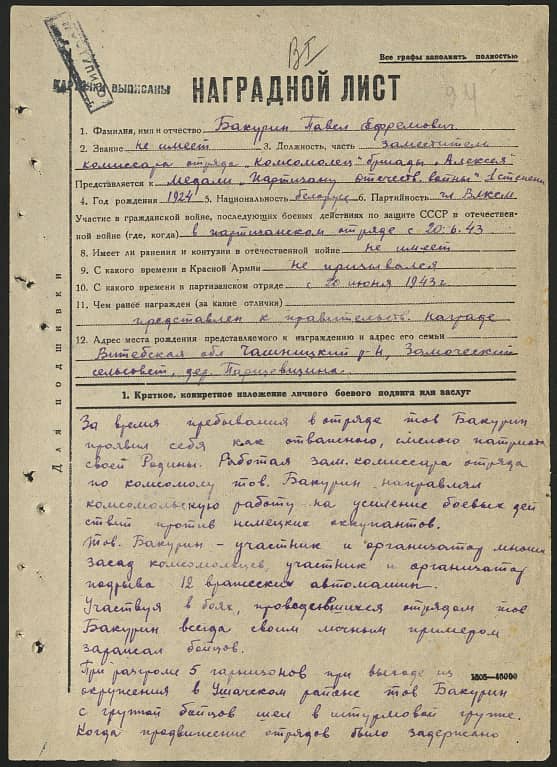 Все графы заполнять полностью
ВЫПИСАНЫ
НАГРАДНОЙ ЛИСТ
1. Фамилия, имя и отчество Бакурин Павел Ефремович
2. Звание не имеет 3. Должность, часть заместитель
комиссара отряда "Комсомолец" бригады "Алексея"
Представляется к медали "Партизану отечеств. войны" I степени
4. Год рождения 1924 5. Национальность белорус 6. Партийность чл ВЛКСМ
Участие в гражданской войне, последующих боевых действиях по защите СССР и отечествен-
ной войне (где, когда) в партизанском отряде с 20.6.43
8. Имеет ли ранения и контузии в отечественной войне не имеет
9. С какого времени в Красной Армии не призывался
10. С какого времени в партизанском отряде с 20 июня 1943 г
11. Чем ранее награжден (за какие отличия)
представлен к правительств. награде
12. Адрес места рождения представляемого к награждению и адрес его семьи
Витебская обл Чашницкий р-н,
сельсовет, дер.
Для подшивки
1. Краткое, конкретное изложение личного боевого подвига или заслуг
За время пребывания в отряде тов Бакурин
проявил себя как отважного, смелого патриота
своей Родины. Работая зам. комиссара отряда
по комсомолу тов. Бакурин направлял
комсомольскую работу на усиление боевых дей
ствий против немецких оккупантов.
Тов. Бакурин - участник и организатор многих
засад комсомольцев, участник и организатор
подрыва 12 вражеских автомашин.
Участвуя в боях, проводившихся отрядом тов
Бакурин всегда своим личным примером
заражал бойцов.
При разгроме 5 гарнизонов при выходе из
окружения в Ушачском районе тов Бакурин
с группой бойцов шел в штурмовой группе.
Когда продвижение отрядов было задержано